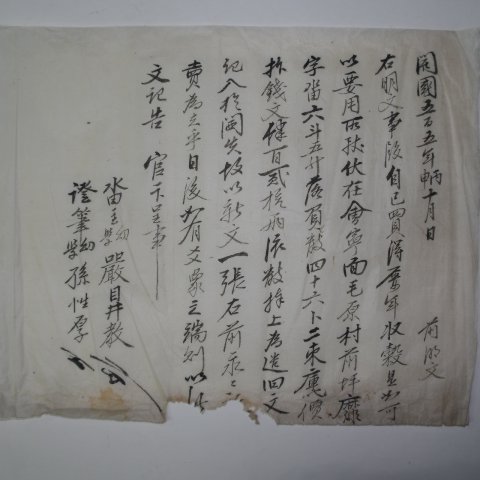 開國五百五年丙申十月日 前明文
右明文事段自己買得累年收穀是如可
以要用所致伏在會寧面毛原村前坪靡
字畓六斗五升落負數四十六卜二束庫價
折錢文肆百貳拾兩依數捧上為遣旧文
記入於閪失故以新文一張右前永
賣為去乎日後如有爻象之端則以此
文記告 官卞呈事
畓主幼學嚴 教
證筆幼學孫性厚